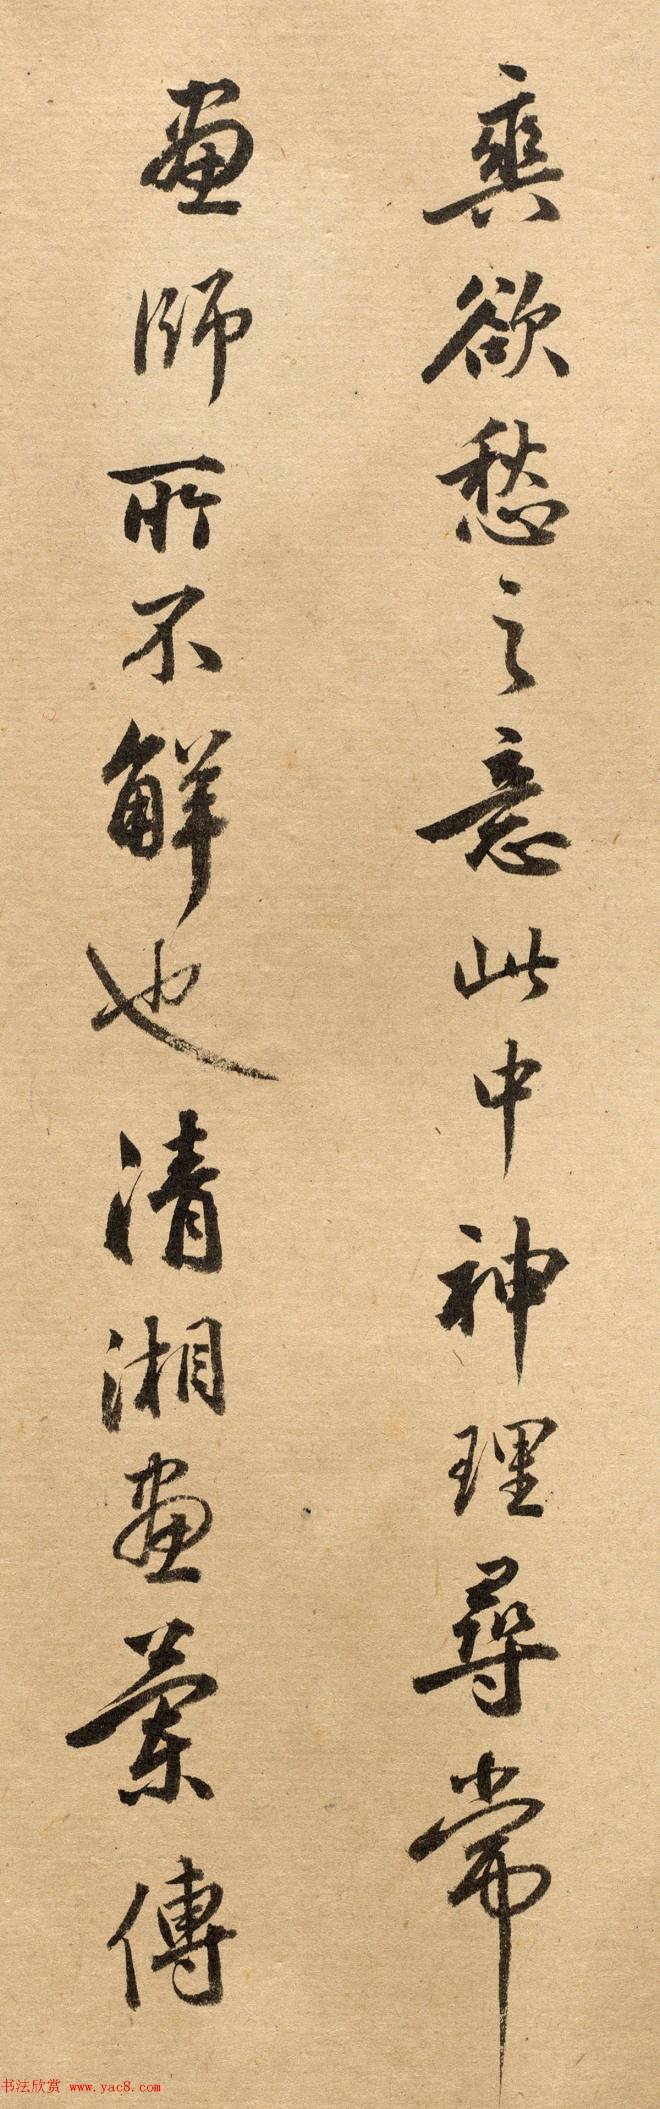 興欲愁之意此中神理尋常
畫師所不解也清湘畫蘭傳
书法欣赏 www.yac8.com